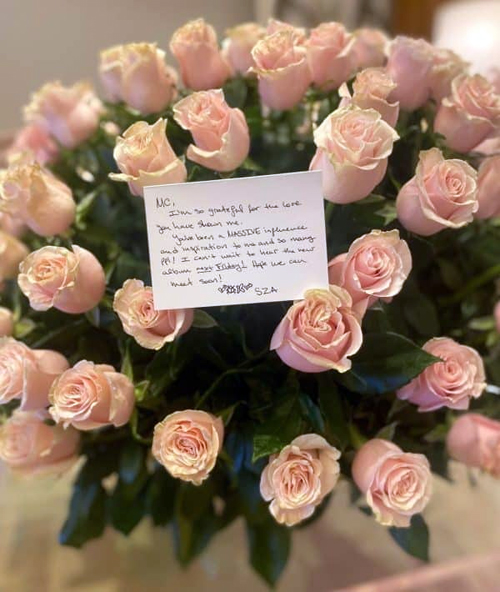 MC,
I'm so grateful for the love
you have shown me.
You've been a MASSIVE influence
and inspiration to me and so many
ppl! I can't wait to hear the new
album next Friday! Hope we can
meet soon!
SZA